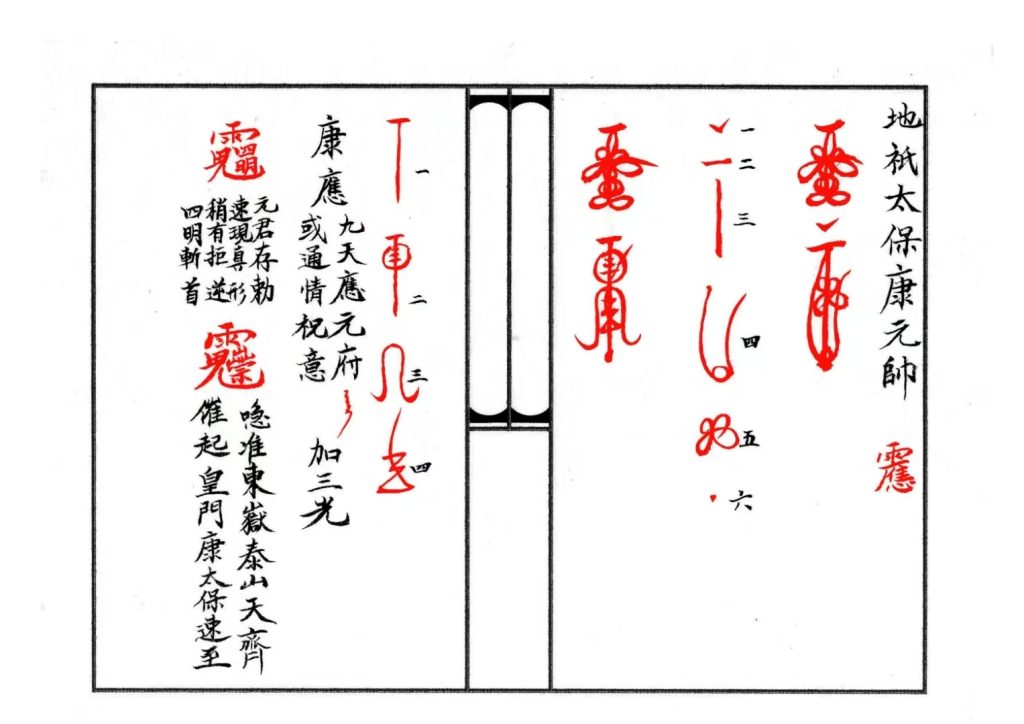 地祇太保康元帥
一
二
三
四
五
六
一
二
三
四
康應
九天應元府
或通情祝意
加三光
元君存勅
速現真形
稍有拒逆
四明斬首
准東嶽泰山天齊
催起皇門康太保速至